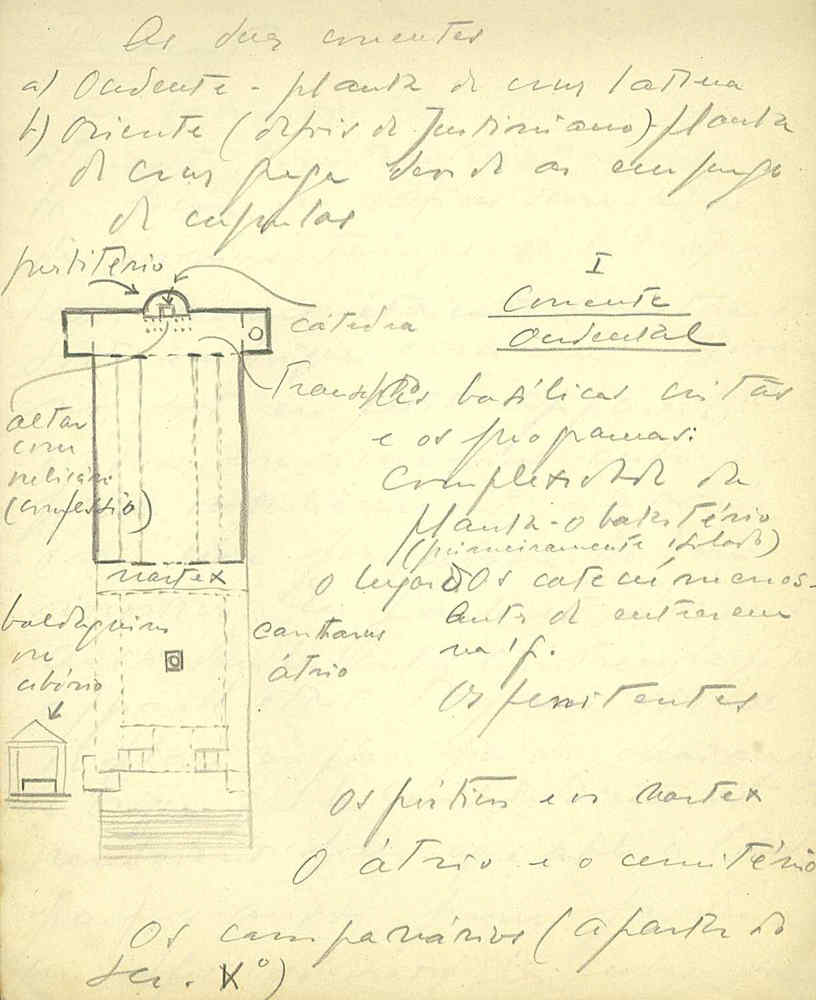 As duas correntes
a) Ocidente - planta de cruz latina
b) Oriente (depois de Justiniano) - planta
de cruz grega servida as conjugo
de cupulas
presbitério
cátedra
transepto
altar
com
relicário
(confessio)
nartex
baldaquino
ou
cibório
cantharus
átrio
I
Corrente
Ocidental
As basílicas cristãs
e os programas:
Complexidade da
planta - o batistério
(primeiramente isolado)
o lugar dos catecúmenos -
antes de entrarem
na ig.
Os penitentes
Os pórticos e o nartex
O átrio e o cemitério
Os campanários (a partir do
séc. Xº)